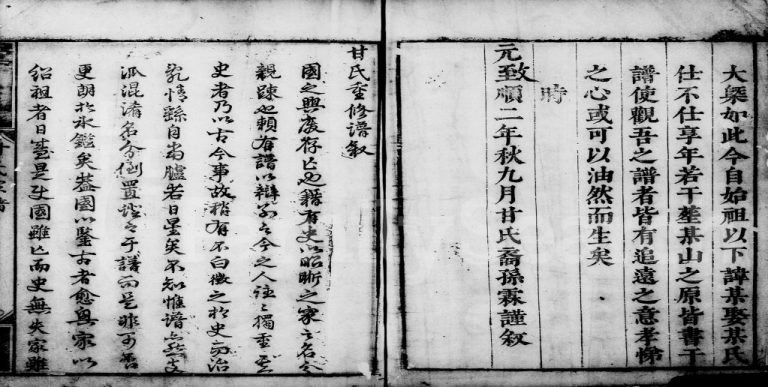 大槩如此今自始祖以下諱某娶某氏
仕不仕享年若干塟某山之原皆書于
譜使觀吾之譜者皆有追遠之意孝悌
之心或可以油然而生矣
時
元至順二年秋九月甘氏裔孫霖謹叙
甘氏重修譜叙
國之興廢存亡也藉有史以昭晰之家之名分
親踈也賴有譜以辯别之今之人往之獨重
史者乃以古今事故稍有不白徵之於史而治
亂情繇自當臚若日星矣不知惟譜
派混淆名分倒置證之于譜而是非可否
更朗於氷鑑矣葢國以鑒古者愈與家以
紹祖者日 是史國雖亡而史無失家雖